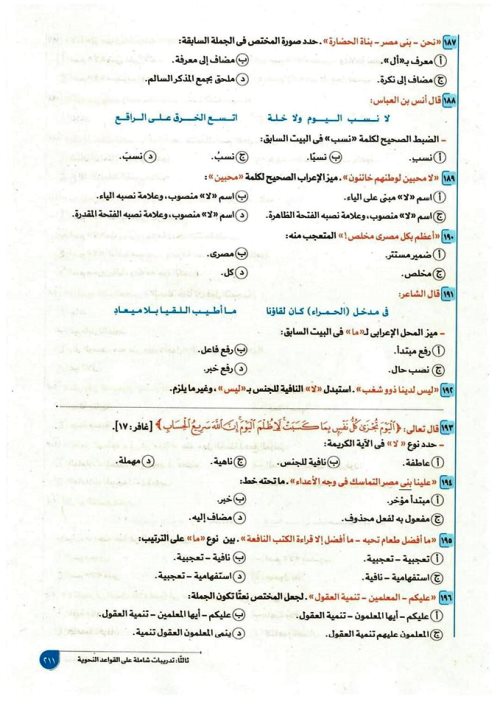 ١٨٧ «نحن - بنى مصر - بناة الحضارة». حدد صورة المختص فى الجملة السابقة:
أ معرف بـ«أل». ب مضاف إلى معرفة.
ج مضاف إلى نكرة. د ملحق بجمع المذكر السالم.
١٨٨ قال أنس بن العباس:
لا نسب اليوم ولا خلة اتسع الخرق على الراقع
- الضبط الصحيح لكلمة «نسب» فى البيت السابق:
أ نسبِ. ب نسبًا. ج نسبُ. د نسبَ.
١٨٩ «لا محبين لوطنهم خائنون». ميز الإعراب الصحيح لكلمة «محبين»:
أ اسم «لا» مبنى على الياء. ب اسم «لا» منصوب، وعلامة نصبه الياء.
ج اسم «لا» منصوب، وعلامة نصبه الفتحة الظاهرة. د اسم «لا» منصوب، وعلامة نصبه الفتحة المقدرة.
١٩٠ «أعظم بكل مصرى مخلص!» المتعجب منه:
أ ضمير مستتر. ب مصرى.
ج مخلص. د كل.
١٩١ قال الشاعر:
فى مدخل (الحمراء) كان لقاؤنا ما أطيب اللقيا بلا ميعادِ
- ميز المحل الإعرابى لـ«ما» فى البيت السابق:
أ رفع مبتدأ. ب رفع فاعل.
ج نصب حال. د رفع خبر.
١٩٢ «ليس لدينا ذوو شغب». استبدل «لا» النافية للجنس بـ«ليس»، وغير ما يلزم.
١٩٣ قال تعالى: ﴿الْيَوْمَ تُجْزَى كُلُّ نَفْسٍ بِمَا كَسَبَتْ لَا ظُلْمَ الْيَوْمَ إِنَّ اللَّهَ سَرِيعُ الْحِسَابِ﴾ [غافر: ١٧].
- حدد نوع «لا» فى الآية الكريمة:
أ عاطفة. ب نافية للجنس. ج ناهية. د مهملة.
١٩٤ «علينا بنى مصر التماسك فى وجه الأعداء». ما تحته خط:
أ مبتدأ مؤخر. ب خبر.
ج مفعول به لفعل محذوف. د مضاف إليه.
١٩٥ «ما أفضل طعام تحبه - ما أفضل إلا قراءة الكتب النافعة». بين نوع «ما» على الترتيب:
أ تعجبية - تعجبية. ب نافية - تعجبية.
ج استفهامية - نافية. د استفهامية - تعجبية.
١٩٦ «عليكم - المعلمين - تنمية العقول». لجعل المختص نعتًا تكون الجملة:
أ عليكم - أيها المعلمون - تنمية العقول. ب عليكم - أيها المعلمين - تنمية العقول.
ج المعلمون عليهم تنمية العقول. د ينمى المعلمون العقول تنمية.
ثالثًا: تدريبات شاملة على القواعد النحوية ٢١١